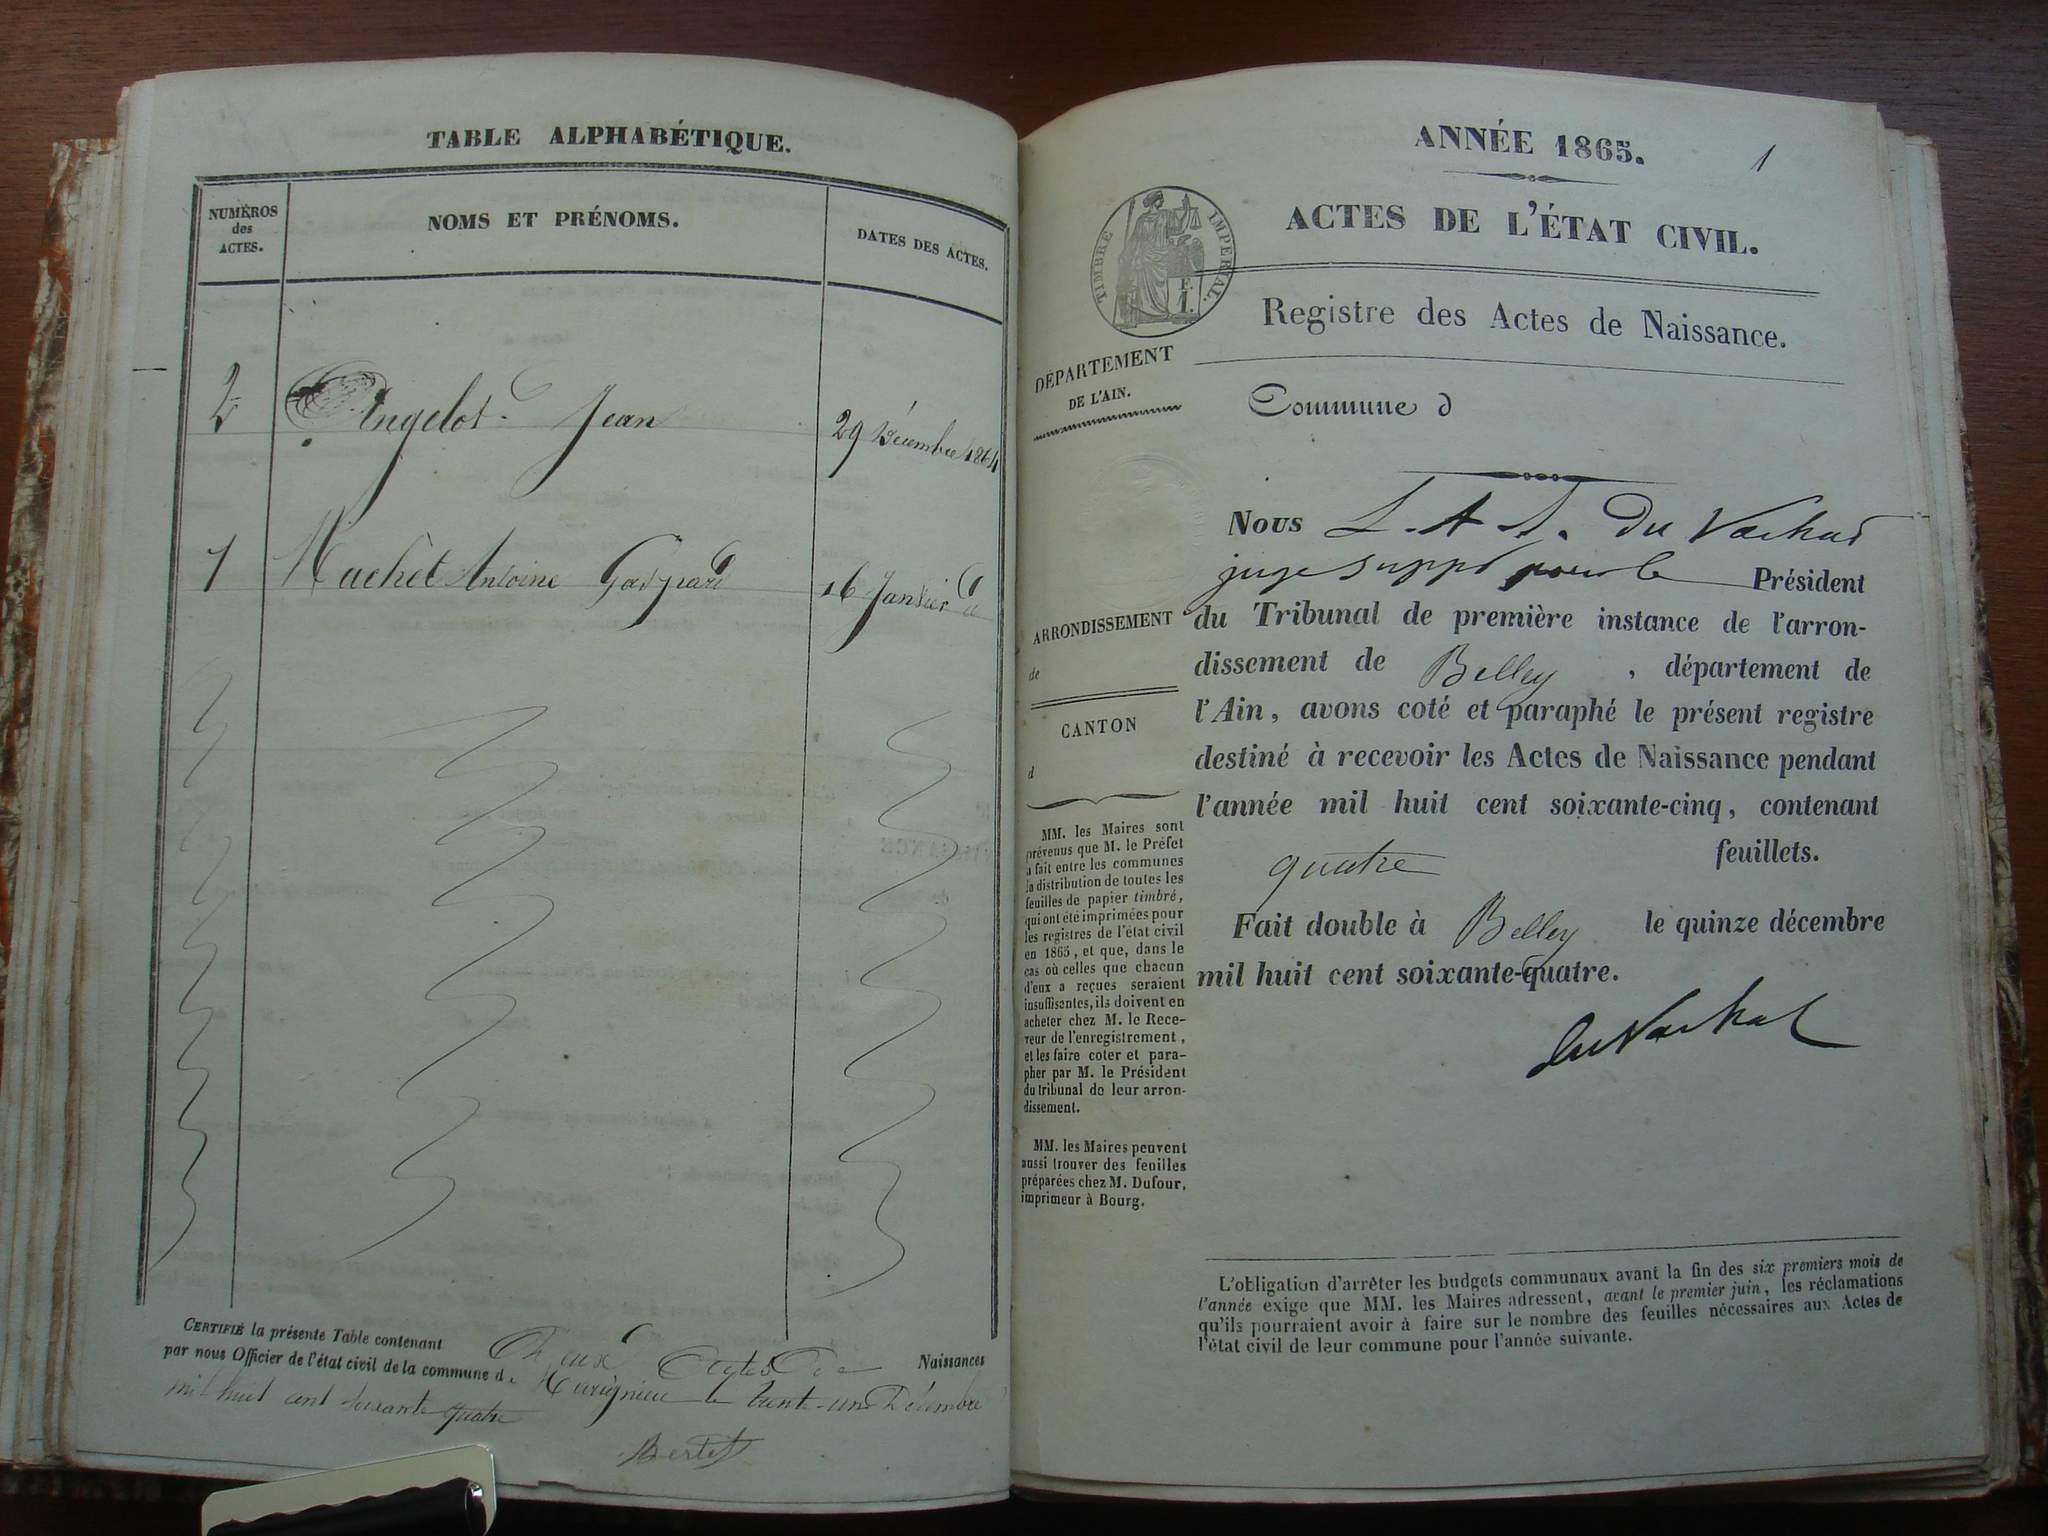 TABLE ALPHABÉTIQUE.
NUMÉROS
des
ACTES.
NOMS ET PRÉNOMS.
DATES DES ACTES.
2
Angelot Jean
29 Décembre 1864
1
Machet Antoine Gaspard
16 Janvier d
CERTIFIÉ la présente Table contenant Deux Actes De Naissances
par nous Officier de l'état civil de la commune d
le trente-un Décembre
mil huit cent soixante quatre
Bertet
ANNÉE 1865.
1
ACTES DE L'ÉTAT CIVIL.
TIMBRE IMPÉRIAL.
F.
1.
Registre des Actes de Naissance.
DÉPARTEMENT
DE L'AIN.
Commune d
ARRONDISSEMENT
de
CANTON
d
MM. les Maires sont
prévenus que M. le Préfet
a fait entre les communes
la distribution de toutes les
feuilles de papier timbré,
qui ont été imprimées pour
les registres de l'état civil
en 1865, et que, dans le
cas où celles que chacun
d'eux a reçues seraient
insuffisantes, ils doivent en
acheter chez M. le Rece-
veur de l'enregistrement,
et les faire coter et para-
pher par M. le Président
du tribunal de leur arron-
dissement.
MM. les Maires peuvent
aussi trouver des feuilles
préparées chez M. Dufour,
imprimeur à Bourg.
Nous L. A. A. Du Vachat
juge suppt pour le Président
du Tribunal de première instance de l'arron-
dissement de Belley, département de
l'Ain, avons coté et paraphé le présent registre
destiné à recevoir les Actes de Naissance pendant
l'année mil huit cent soixante-cinq, contenant
quatre feuillets.
Fait double à Belley le quinze décembre
mil huit cent soixante-quatre.
Du Vachat
L'obligation d'arrêter les budgets communaux avant la fin des six premiers mois de
l'année exige que MM. les Maires adressent, avant le premier juin, les réclamations
qu'ils pourraient avoir à faire sur le nombre des feuilles nécessaires aux Actes de
l'état civil de leur commune pour l'année suivante.